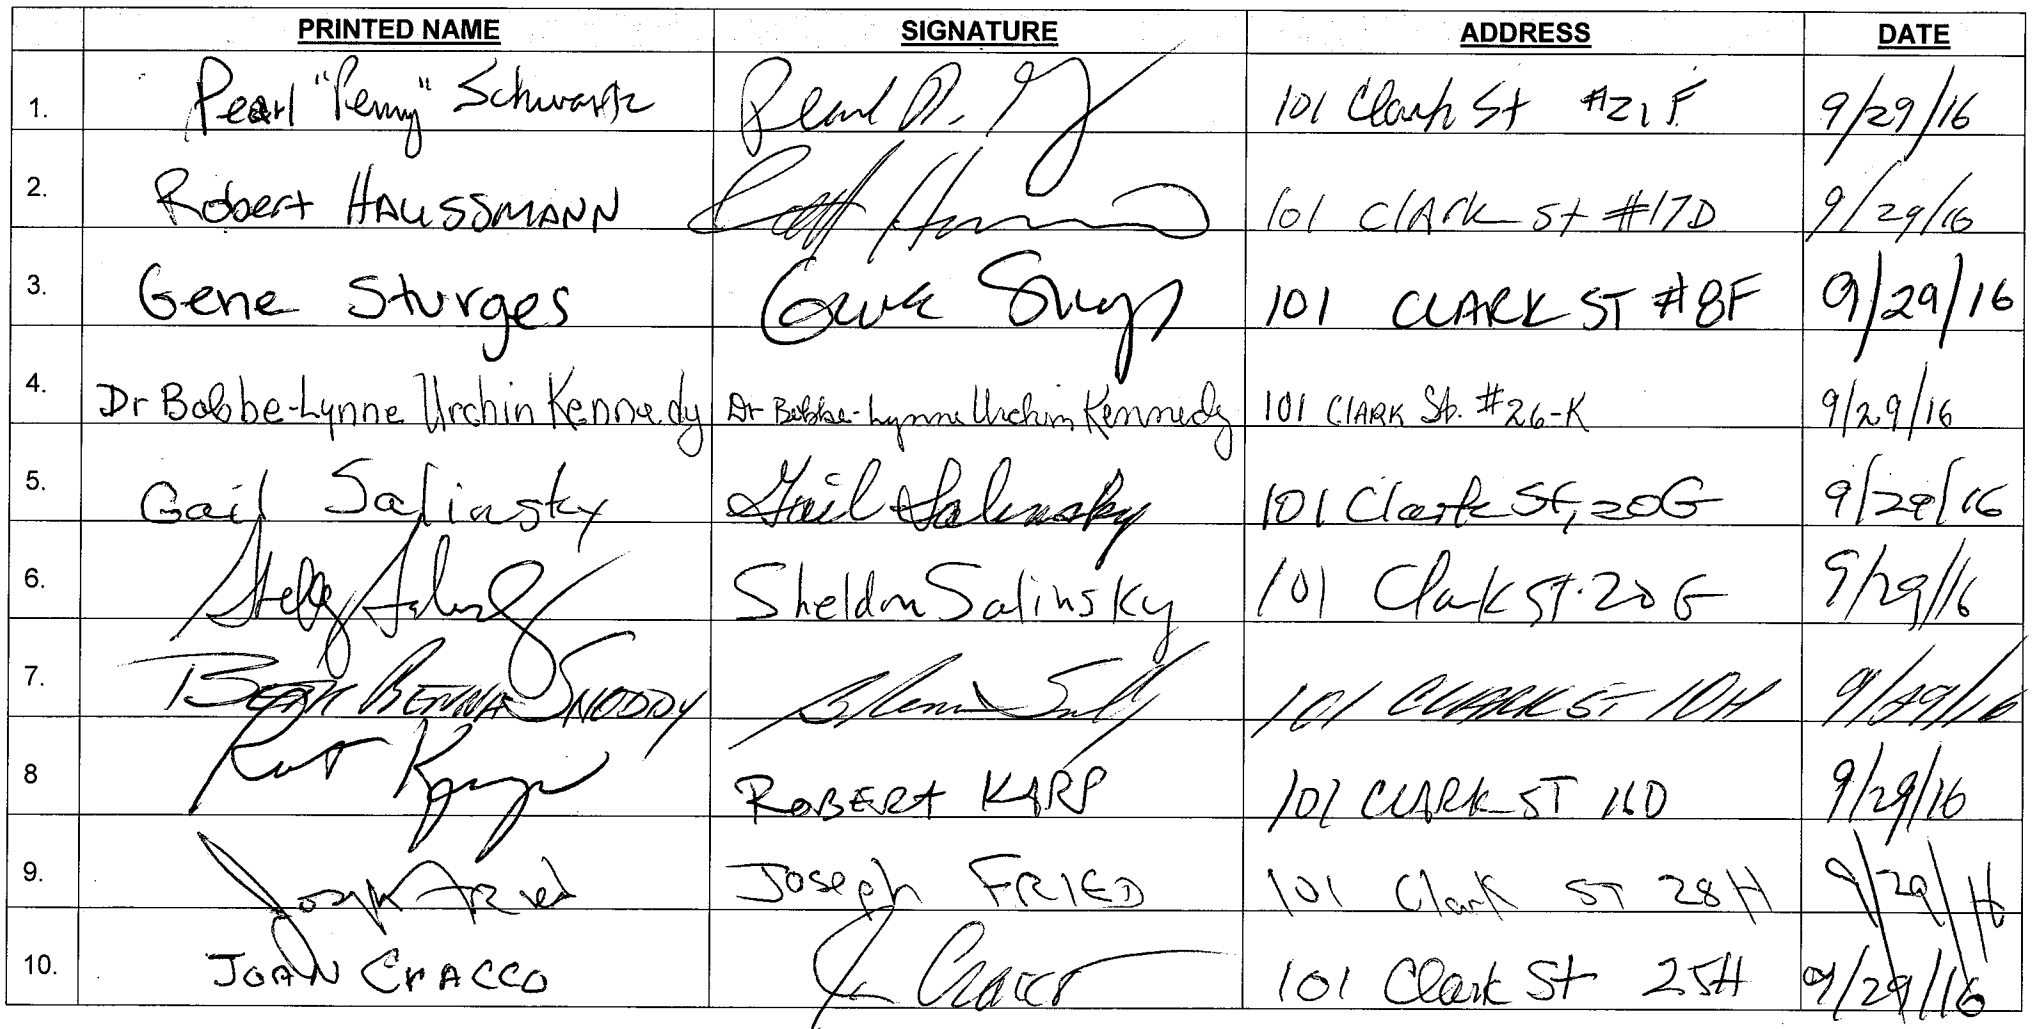 PRINTED NAME SIGNATURE ADDRESS DATE
1. Pearl "Penny" Schwartz Pearl 101 Clark St #21F 9/29/16
2. Robert HAUSSMANN 101 ClARK St #17D 9/29/16
3. Gene Sturges Gene Sturges 101 CLARK ST #8F 9/29/16
4. Dr Bobbe-Lynne Urchin Kennedy Dr Bobbe-Lynne Urchin Kennedy 101 CLARK St. #26-K 9/29/16
5. Gail Salinsky Gail Salinsky 101 Clark St, 20G 9/29/16
6. Shelly Salinsky Sheldon Salinsky 101 Clark ST. 20G 9/29/16
7. BENNA SNODDY 101 CLARK ST 10H 9/29/16
8 ROBERT KARP 101 CLARK ST 16D 9/29/16
9. Joseph Fried Joseph FRIED 101 Clark ST 28H 9/29/16
10. JOAN CRACCO Cracco 101 Clark St 25H 9/29/16